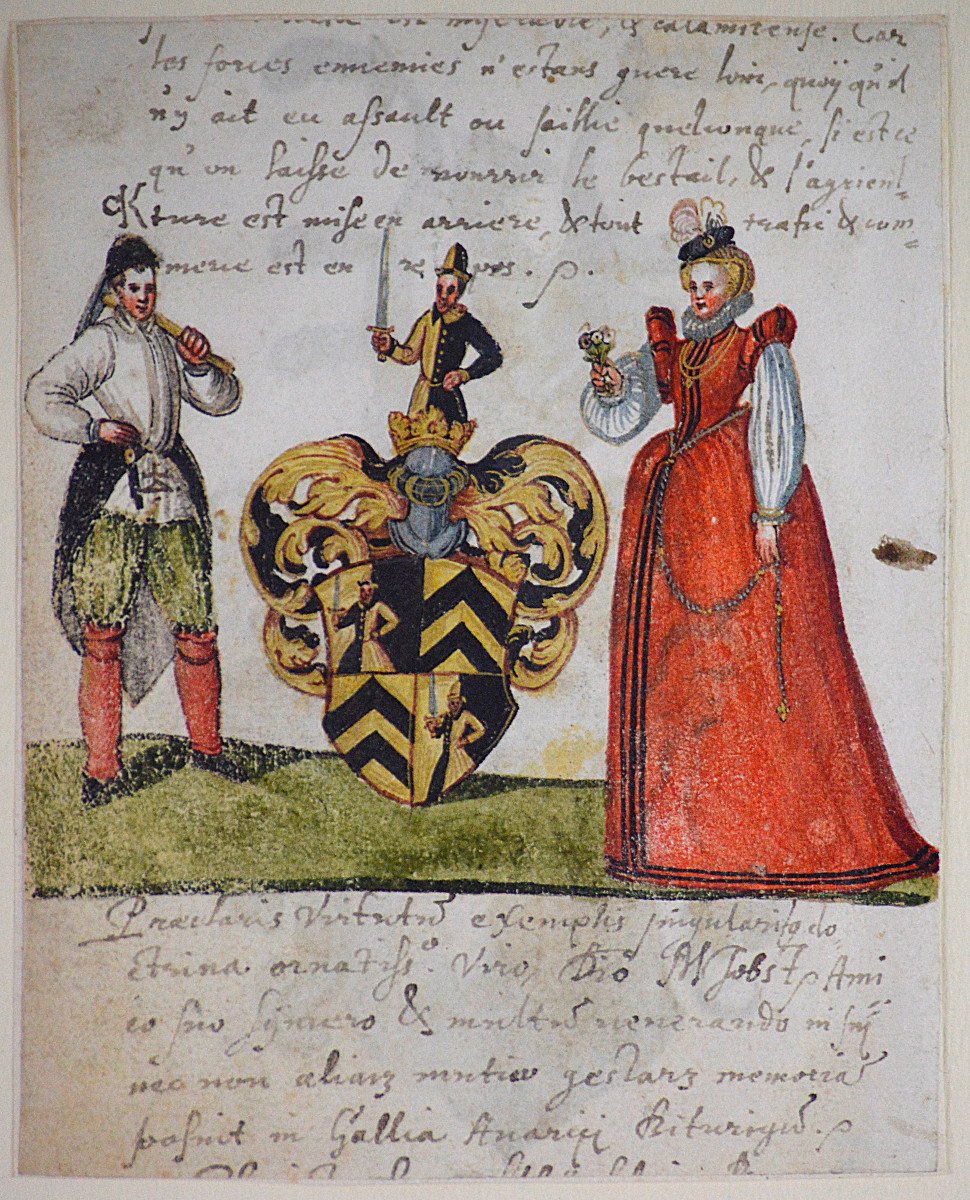 est miserable, & calamiteuse. Car
les forces ennemies n'estans guere loin, quoÿ qu'il
n'y ait eu assault ou saillie quelconque, si est ce
qu'on laisse de nourrir le bestail, & l'agricul-
ture est mise en arriere, & tout trafic & com-
merce est en
Præclaris Virtutū exemplis singulariq do
ctrina ornatissᵒ. Viro, Dn̄o M Jobst, Ami
co suo syncero & multū venerando in sui
nec non aliarz mutuo gestarz memoriā
posuit in Gallia Avarici Biturigū.